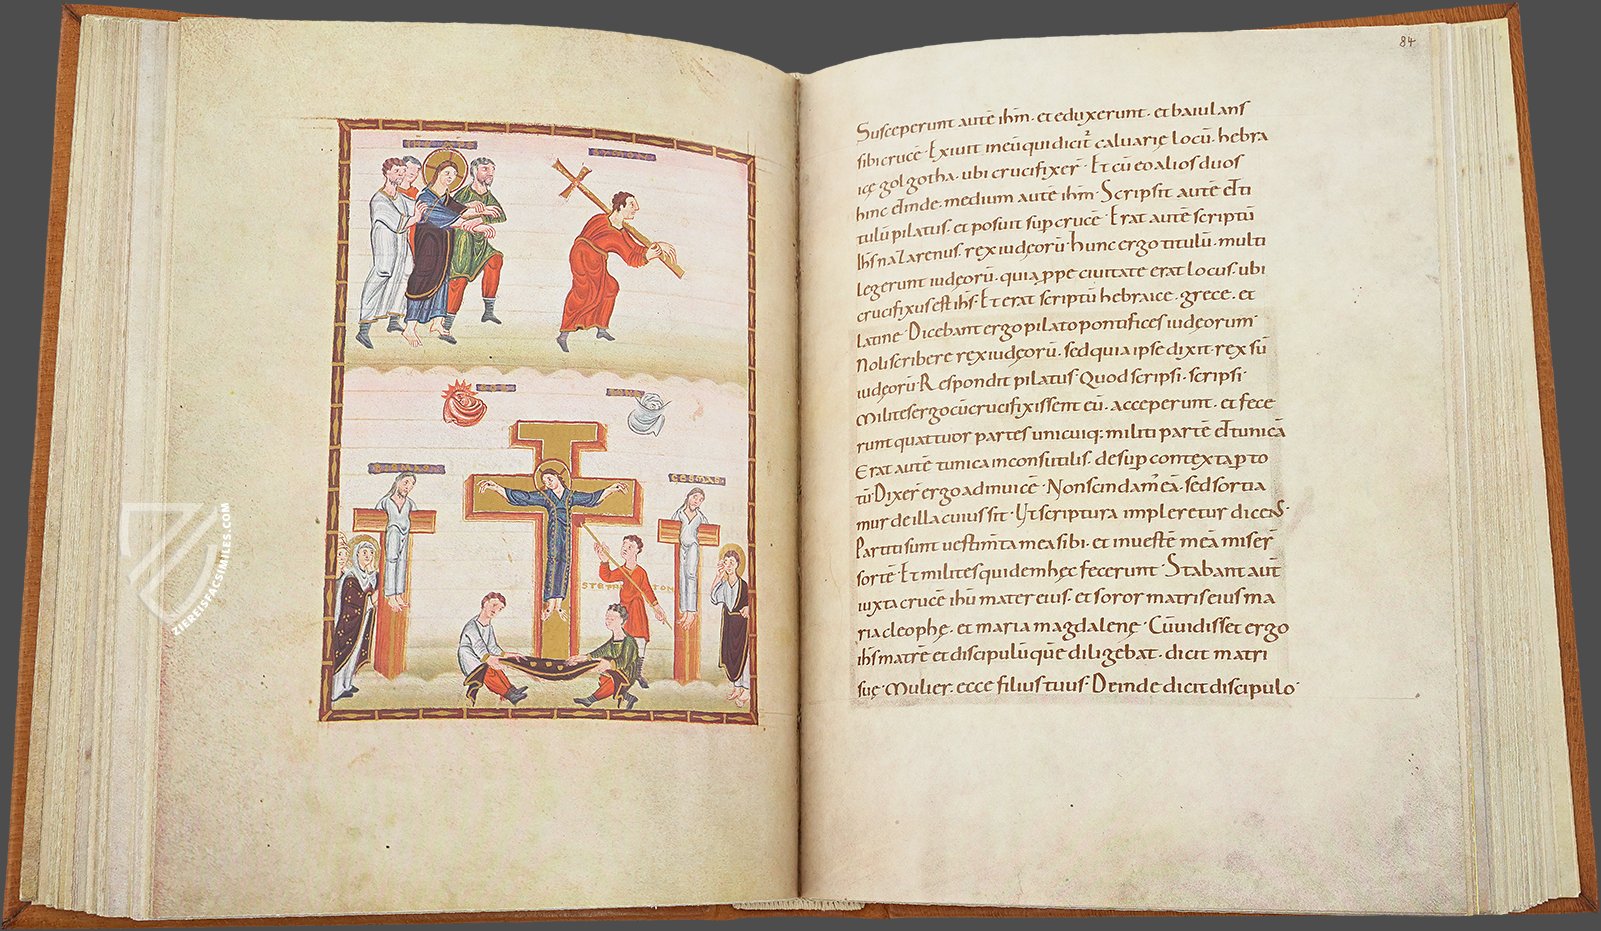 DISMAS
COSMAS
STEPHATON
ZIEREISFACSIMILES.COM
84
Susceperunt autē ihm̄. et eduxerunt. et baiulans
sibi crucē. Exiuit in eū qui dicit̄ caluarię locū. hebra
icę golgotha. ubi crucifixer̄. Et cū eo alios duos
hinc et inde. medium autē ihm̄. Scripsit autē et ti
tulū pilatus. et posuit sup crucē. Erat autē scriptū
Ihs nazarenus. rex iudęorū. Hunc ergo titulū. multi
legerunt iudęorū. quia ꝓpe ciuitatē erat locus. ubi
crucifixus est ihs̄. Et erat scriptū hebraice. grece. et
latine. Dicebant ergo pilato pontifices iudęorum
Noli scribere rex iudęorū. sed quia ipse dixit. rex sū
iudęorū. Respondit pilatus. Quod scripsi. scripsi.
Milites ergo cū crucifixissent eū. acceperunt. et fece
runt quattuor partes unicuiq; militi partē et tunicā
Erat autē tunica inconsutilis. desup contexta p to
tū. Dixer̄ ergo ad inuicē. Non scindam̄ eā. sed sortia
mur de illa cuius sit. Ut scriptura impleretur dicens.
Partiti sunt uestim̄ta mea sibi. et in uestē meā miser̄
sortē. Et milites quidem hęc fecerunt. Stabant aut̄
iuxta crucē ihū mater eius. et soror matris eius ma
ria cleophę. et maria magdalenę. Cū uidisset ergo
ihs matrē et discipulū quē diligebat. dicit matri
suę. Mulier. ecce filius tuus. Deinde dicit discipulo.